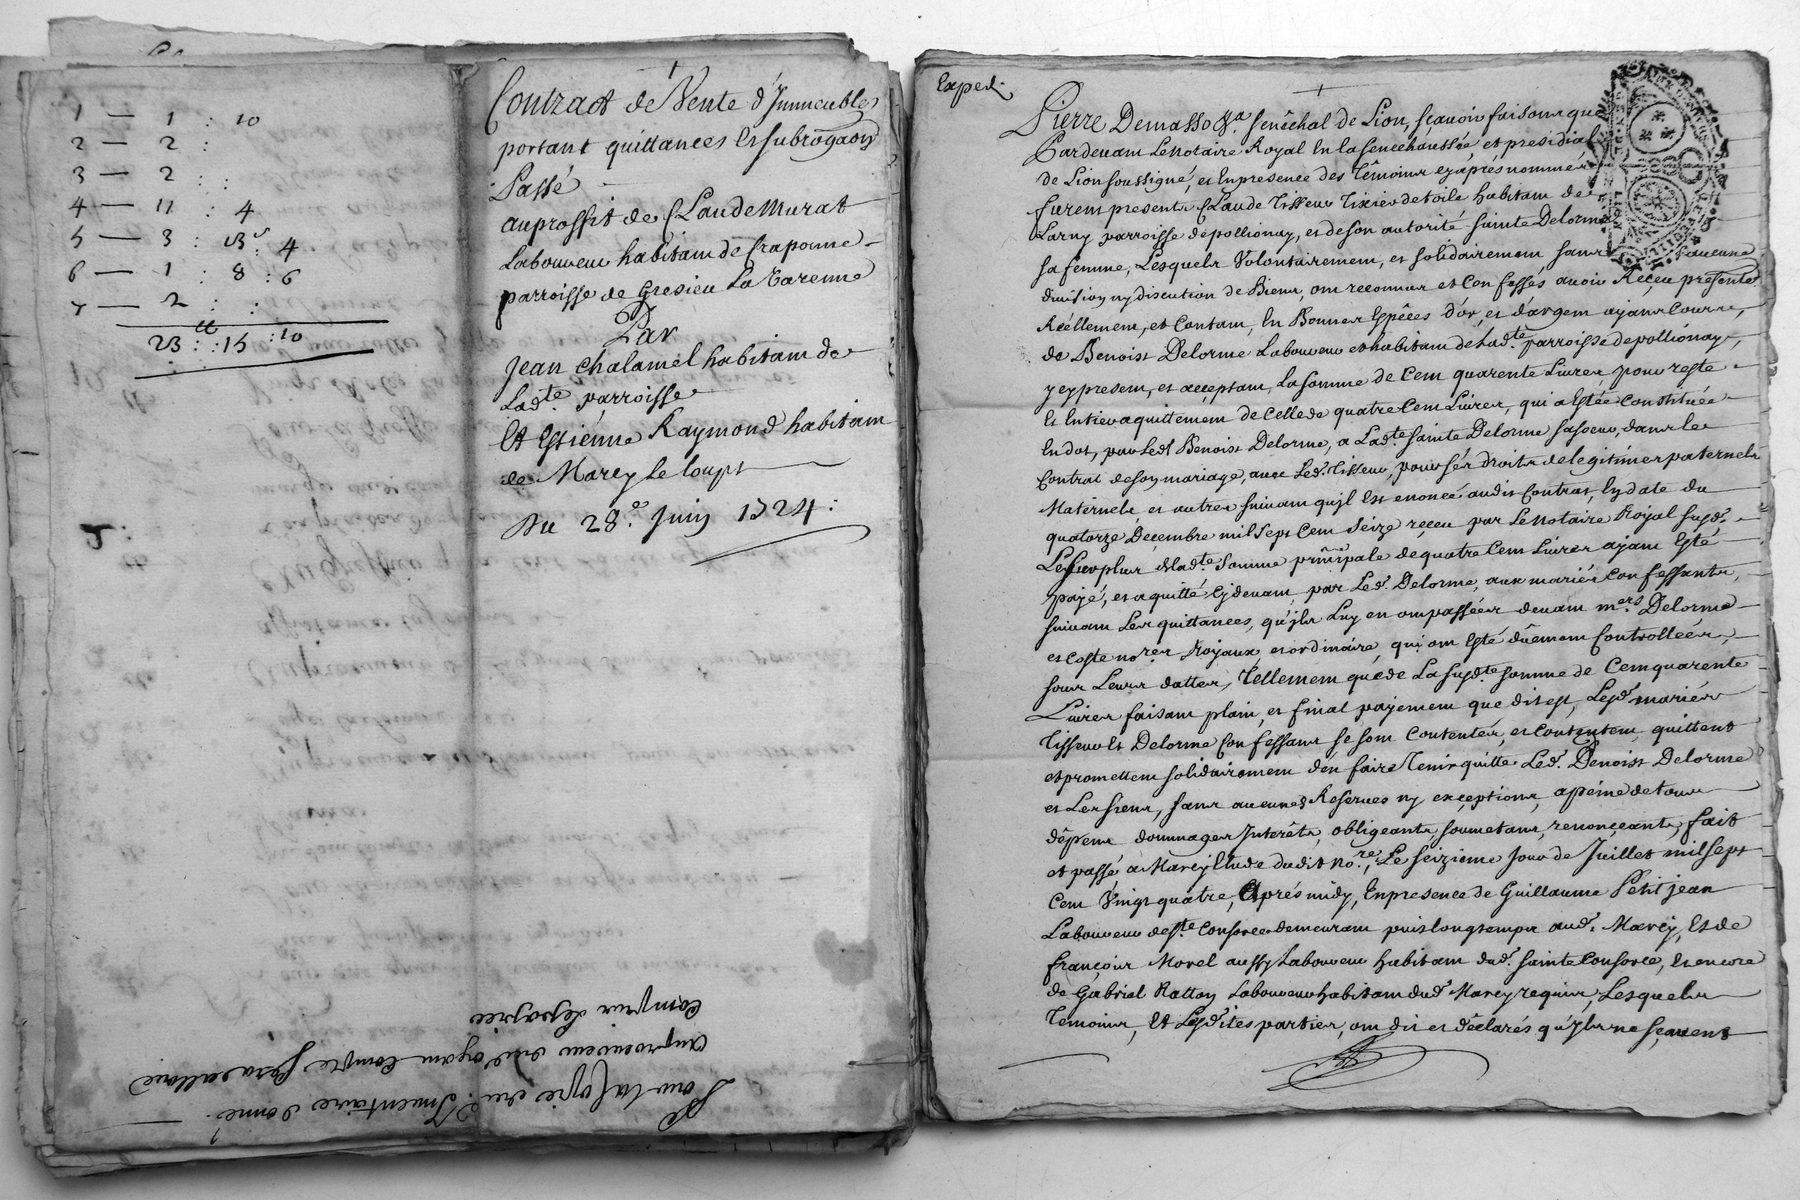 1 — 1 : 10
2 — 2 :
3 — 2 : :
4 — 11 : 4
5 — 3 : 4
6 — 1 : 8 : 6
7 — 2 : :
23 : 15 : 10
Contract de Vente d'Immeubles
portant quittances et subrogaōn
Passé
auproffit de Claude Murat
Laboureur habitant de Craponne
parroisse de Gresieu La Varenne
Par
Jean Chalamel habitant de
Ladte parroisse
Et Estienne Raymond habitant
de Marcy le loup
Du 28e Juin 1724 :
Pour la Copie du Inventaire donné
au procureur dud oyant Compte sera alloué
Compris
Exped.
Pierre Demasso &a senéchal de Lion, sçavoir faisons que
Pardevant Le Notaire Royal en la seneéchaussée et presidial
de Lion soussigné, et en presence des Témoins cyaprés nommés
furent presents Claude Tisseur Tixier de toile habitant de
Larny parroisse de pollionay, et de son autorité sainte Delorme
sa femme, Lesquels Volontairement, et solidairement sans aucune
division ny discution de Biens, ont reconnus et Confesses avoir Reçeu présentement
Réellement, et Contant, En Bonnes Espéces d'or, et d'argent ayans Cours,
de Benoist Delorme Laboureur et habitant de Ladte parroisse de pollionay,
y cy present, et acceptant, La somme de Cent quarente Livres pour reste
Et Entier aquittement de Celle de quatre Cent Livres, qui a Estée Constituée
En dot, par Led Benoist Delorme, a Ladte sainte Delorme sa soeur, dans le
Contrat de son mariage, avec Led. Tisseur, pour sés Droits de legitimes paternels
Maternels et autres suivant qu'jl Est enoncé audit Contrat, En date du
quatorze Decembre mil sept Cent seize reçeu par Le Notaire Royal susd.
Le surplus de Ladte Somme principale de quatre Cent Livres ayant Esté
payé, et aquitté Cy devant par Led. Delorme, aux mariés Confessants,
suivant Les quittances, qu'jls Luy en ont passées devant mers Delorme
et Coste nores Royaux et ordinaire, qui ont Esté dûement Controllées,
sous Leurs dattes, Tellement que de La susdte somme de Cent quarente
Livres faisant plain, et final payement que dit est, Lesd mariés
Tisseur Et Delorme Confessans se sont Contentés, et Contentent, quittent
et promettent solidairement d'en faire Tenir quitte Led. Benoist Delorme
et Les siens, sans aucunes Reserves ny exceptions, a peine de tous
dépens dommages Interêts, obligeants, soumetans, renonçeants, fait
et passé a Marcy Etude dudit nore, Le seizieme Jour de Juillet mil sept
Cent Vingt quatre, Aprés midy, En presence de Guillaume Petit jean
Laboureur de Ste Consorce demeurant puis longtemps aud. Marcy, Et de
françois Morel aussy Laboureur habitant dud. sainte Consorce, Et encore
de Gabriel Ratton Laboureur habitant dud Marcy requis, Lesquels
Temoins, Et Lesdites parties, ont dit et déclarés qu'jls ne sçavent